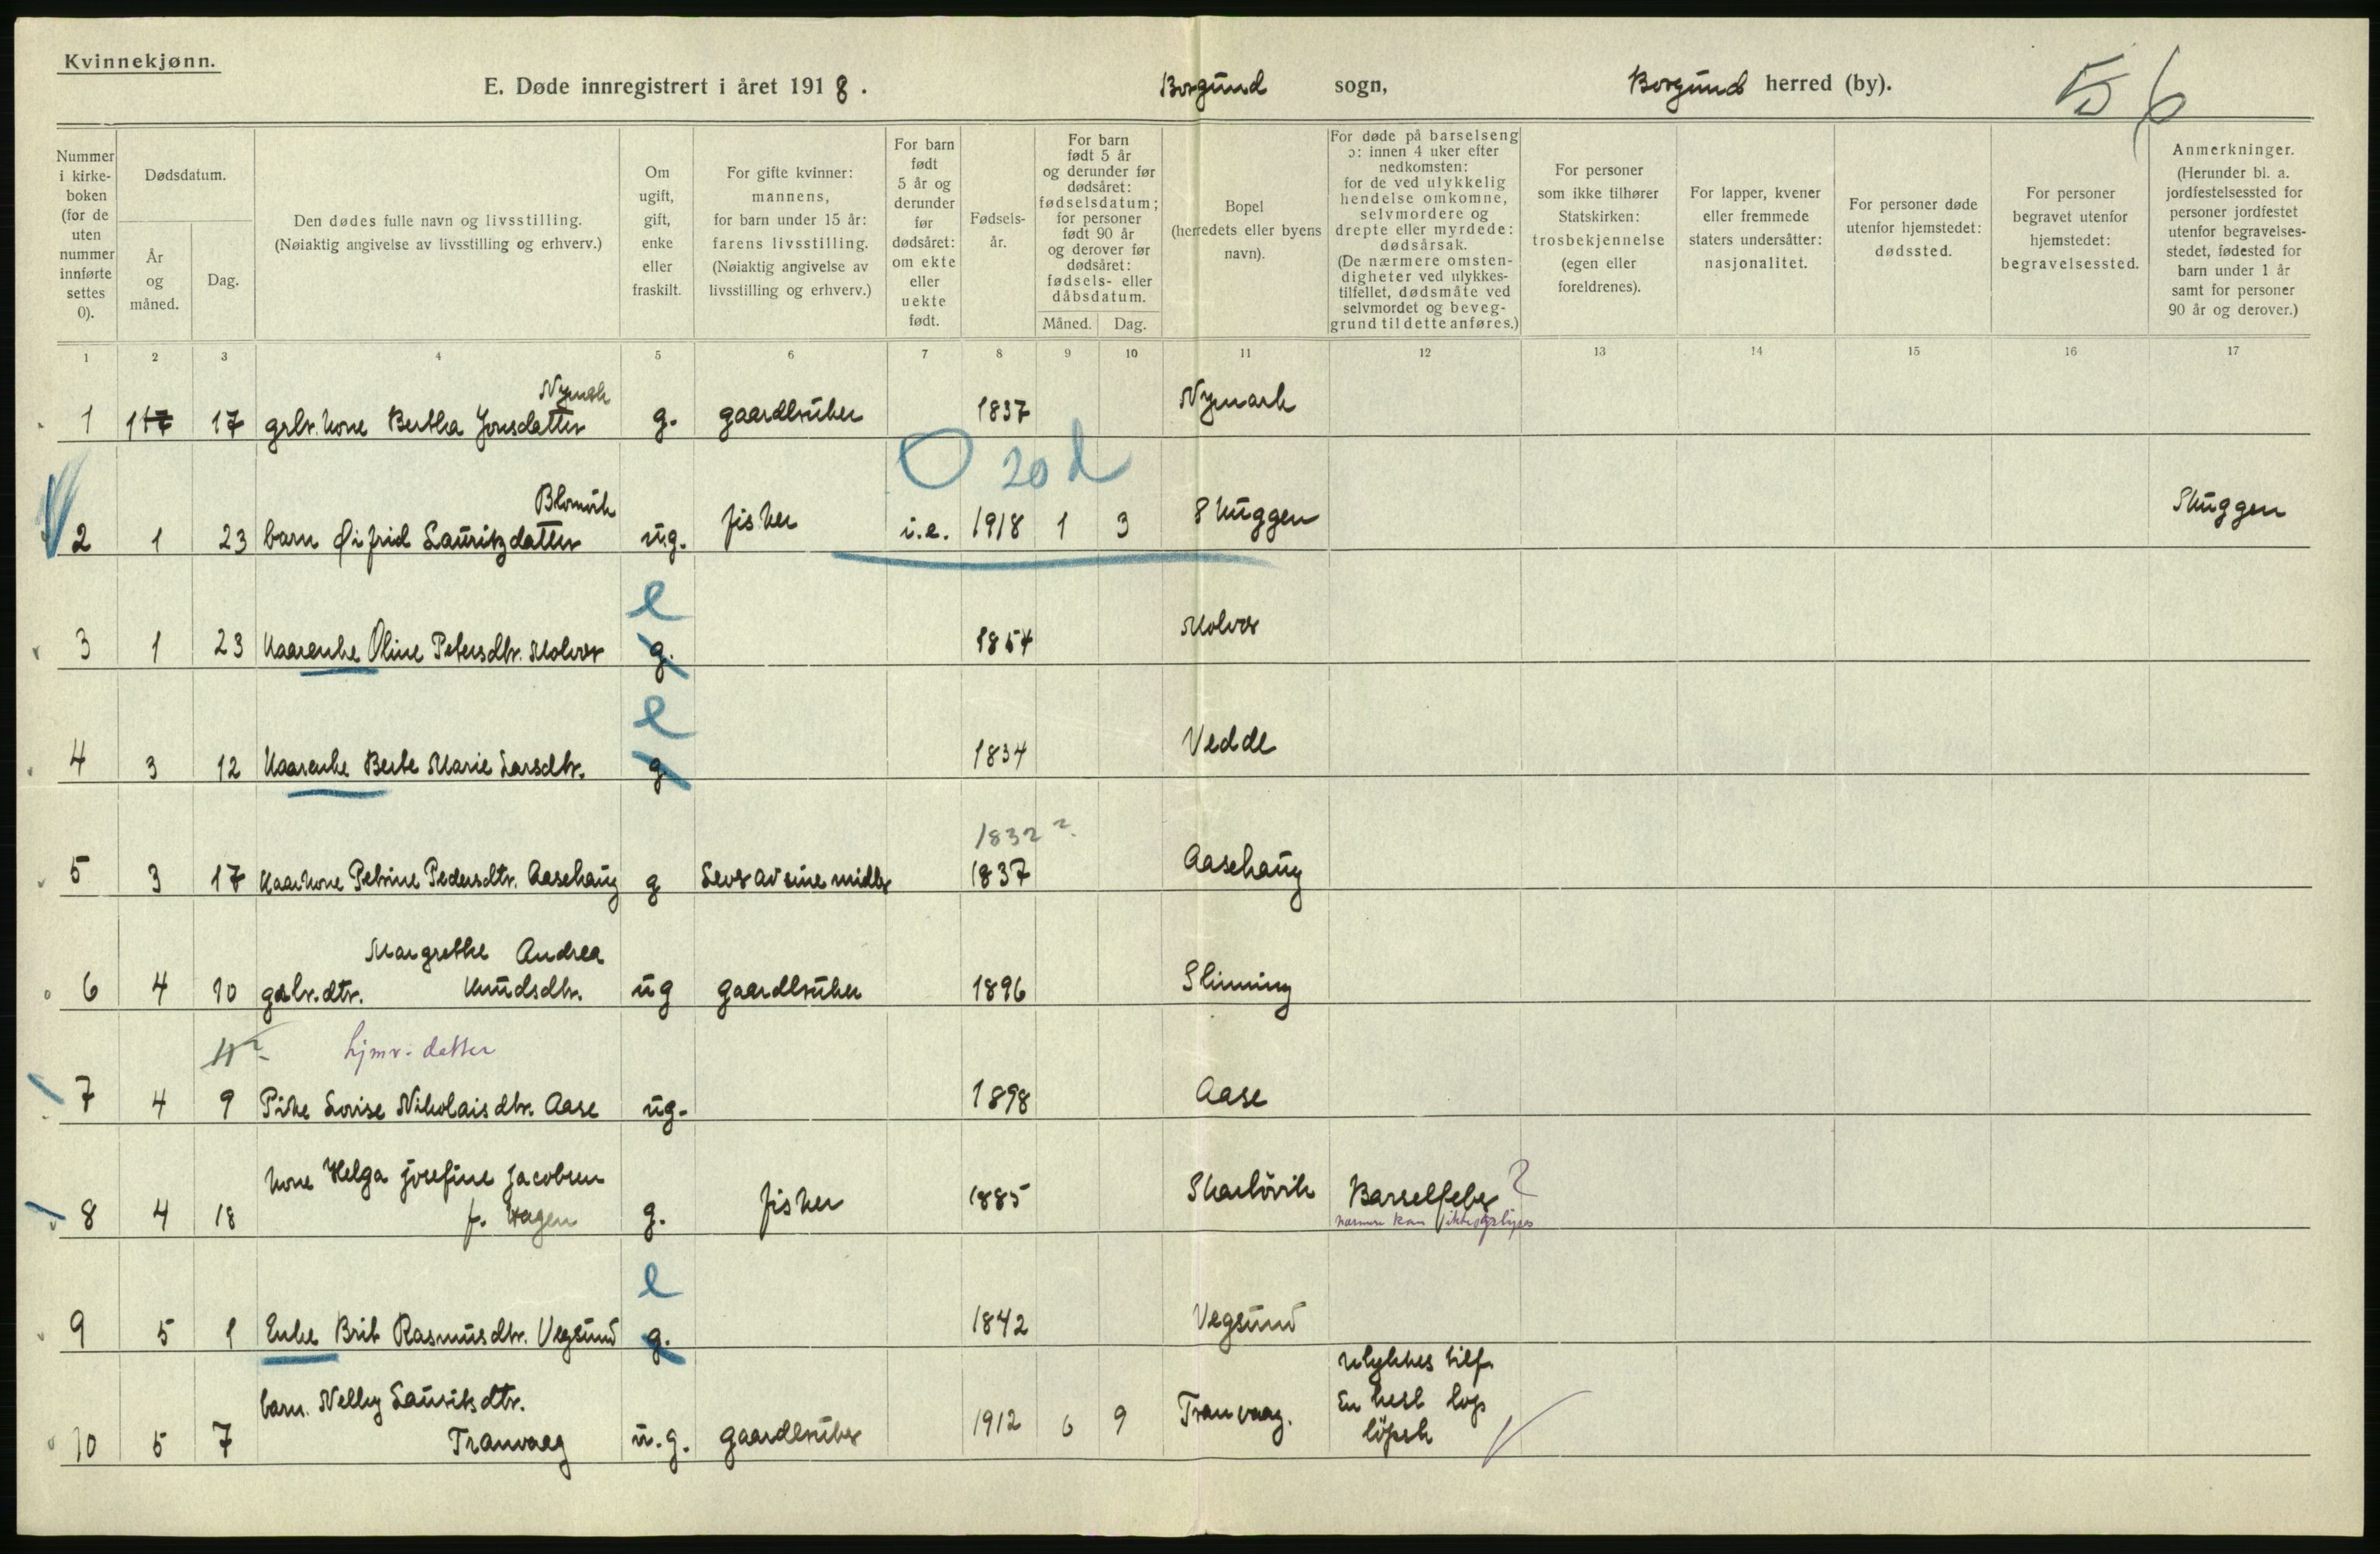 Kvinnekjønn.
E. Døde innregistrert i året 1918. Borgund sogn, Borgund herred (by). 56
Nummer i kirkeboken (for de uten nummer innførte settes 0).
Dødsdatum.
År og måned.
Dag.
Den dødes fulle navn og livsstilling.
(Nøiaktig angivelse av livsstilling og erhverv.)
Om ugift, gift, enke eller fraskilt.
For gifte kvinner: mannens, for barn under 15 år: farens livsstilling. (Nøiaktig angivelse av livsstilling og erhverv.)
For barn født 5 år og derunder før dødsåret: om ekte eller uekte født.
Fødselsår.
For barn født 5 år og derunder før dødsåret: fødselsdatum; for personer født 90 år og derover før dødsåret: fødsels- eller dåbsdatum.
Måned.
Dag.
Bopel (herredets eller byens navn).
For døde på barselseng ɔ: innen 4 uker efter nedkomsten: for de ved ulykkelig hendelse omkomne, selvmordere og drepte eller myrdede: dødsårsak. (De nærmere omstendigheter ved ulykkestilfellet, dødsmåte ved selvmordet og beveggrund til dette anføres.)
For personer som ikke tilhører Statskirken: trosbekjennelse (egen eller foreldrenes).
For lapper, kvener eller fremmede staters undersåtter: nasjonalitet.
For personer døde utenfor hjemstedet: dødssted.
For personer begravet utenfor hjemstedet: begravelsessted.
Anmerkninger. (Herunder bl. a. jordfestelsessted for personer jordfestet utenfor begravelsesstedet, fødested for barn under 1 år samt for personer 90 år og derover.)
1 2 3 4 5 6 7 8 9 10 11 12 13 14 15 16 17
Nymark
1 1 17 17 grbr. kone Bertha Jonsdatter g. gaardbruker 1837 Nymark
0 20 d
Blomvik
2 1 23 barn Øifrid Lauritzdatter ug. fisker u.e. 1918 1 3 Skuggen Skuggen
e
3 1 23 Kaarenke Oline Petersdtr. Molvær g. 1854 Molvær
e
4 3 12 Kaarenke Berte Marie Larsdtr. g 1834 Vedde
1832 ?
5 3 17 Kaarkone Petrine Pedersdtr. Aasehaug g Lever av sine midler 1837 Aasehaug
Margrethe Andrea
6 4 10 grbr. dtr. Knudsdtr. ug gaardbruker 1896 Slinning
11 ? hjmv. datter
7 4 9 Pike Lovise Nikolaisdtr. Aase ug. 1898 Aase
kone Helga Josefine Jacobsen
8 4 18 f. Hagen g. fisker 1885 Skarbövik Barselfeber ?
nærmere kan ikke oplyses
e
9 5 1 Enke Brit Rasmusdtr. Vegsund g. 1842 Vegsund
ulykkes tilf.
barn. Nelly Lauritsdtr. En hest løp
10 5 7 Tranvaag u.g. gaardbruker 1912 6 9 Tranvaag. löpsk